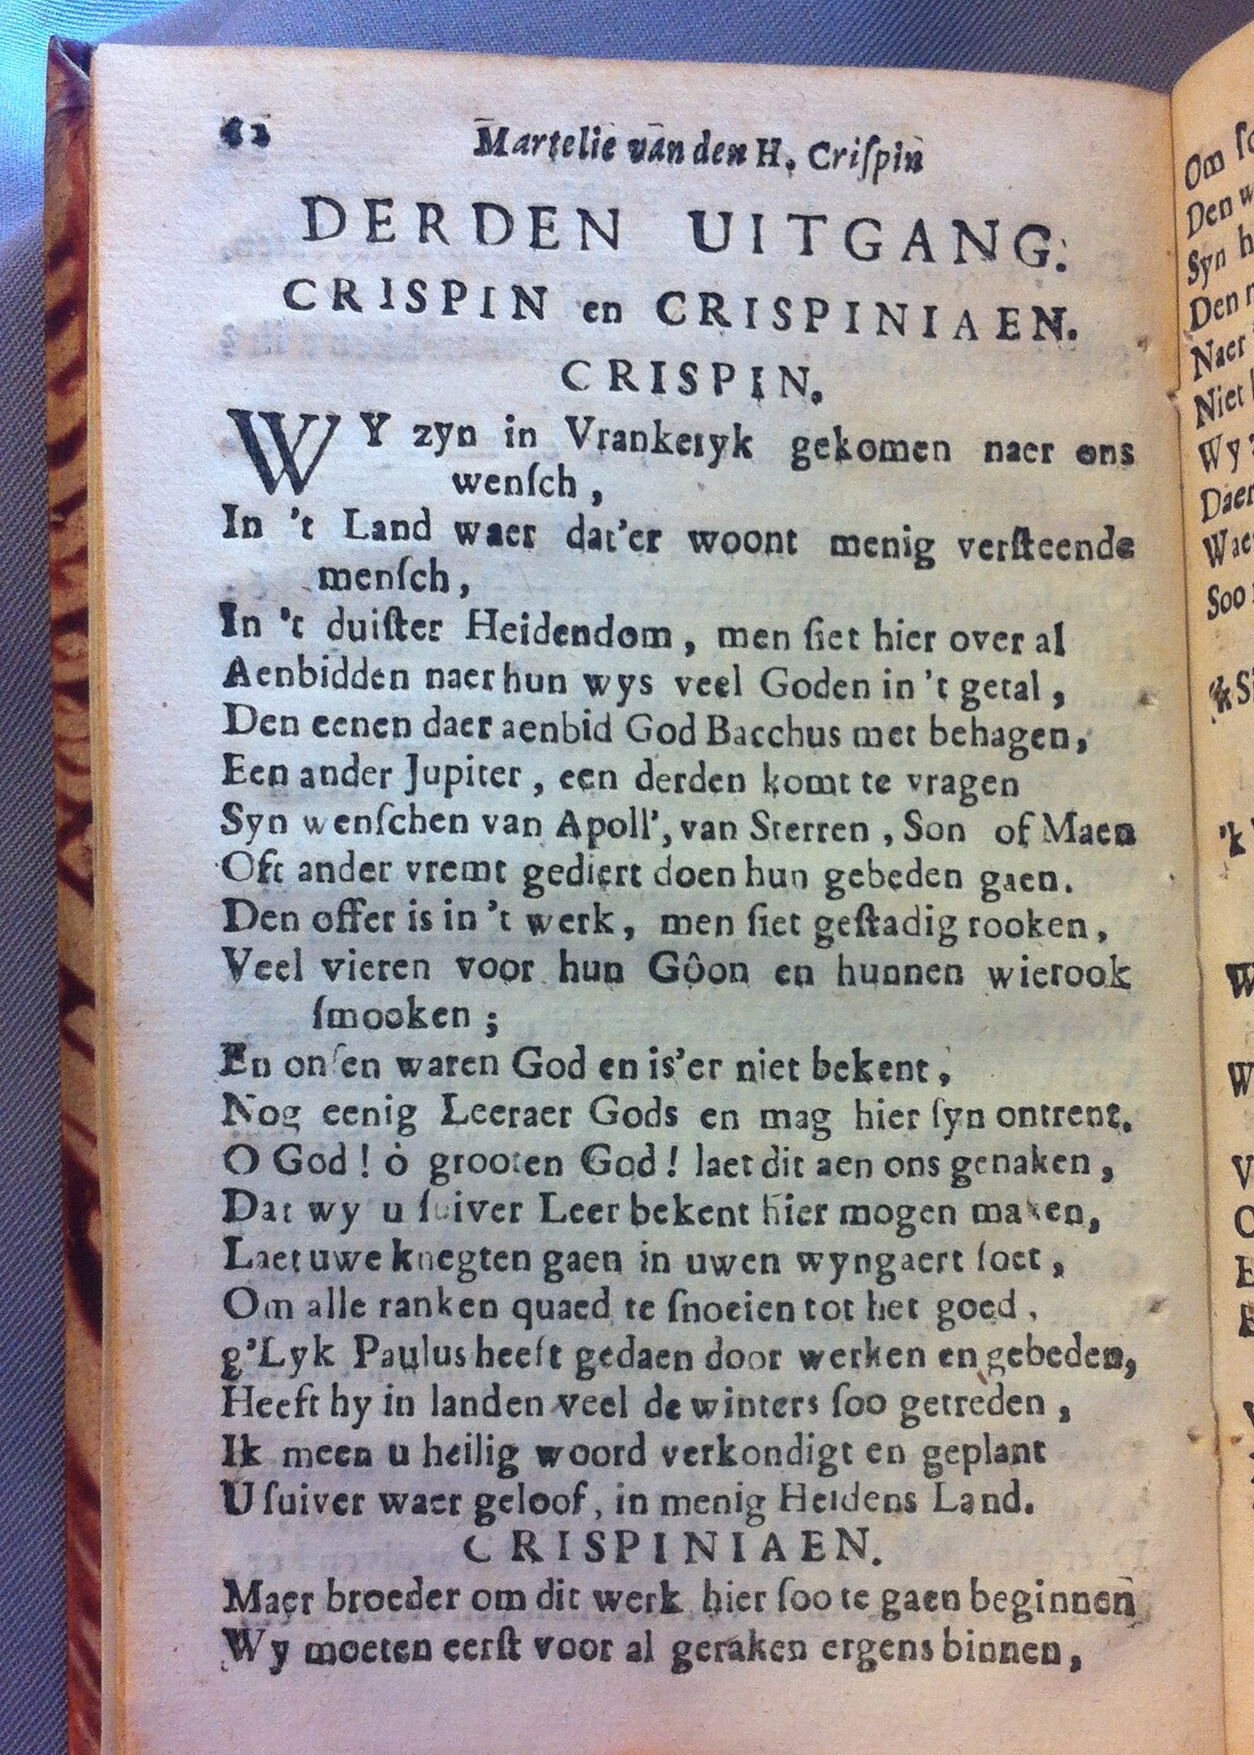 12 Martelie van den H. Criſpin
DERDEN UITGANG.
CRISPIN en CRISPINIAEN.
CRISPIN.
WY zyn in Vrankeryk gekomen naer ons
wenſch,
In 't Land waer dat'er woont menig verſteende
menſch,
In 't duiſter Heidendom, men ſiet hier over al
Aenbidden naer hun wys veel Goden in 't getal,
Den eenen daer aenbid God Bacchus met behagen,
Een ander Jupiter, een derden komt te vragen
Syn wenſchen van Apoll', van Sterren, Son of Maen
Oft ander vremt gediert doen hun gebeden gaen.
Den offer is in 't werk, men ſiet geſtadig rooken,
Veel vieren voor hun Gôon en hunnen wierook
ſmooken;
En onſen waren God en is'er niet bekent,
Nog eenig Leeraer Gods en mag hier ſyn ontrent.
O God! ò grooten God! laet dit aen ons genaken,
Dat wy u ſuiver Leer bekent hier mogen maken,
Laet uwe knegten gaen in uwen wyngaert ſoet,
Om alle ranken quaed te ſnoeien tot het goed,
g'Lyk Paulus heeft gedaen door werken en gebeden,
Heeft hy in landen veel de winters ſoo getreden,
Ik meen u heilig woord verkondigt en geplant
U ſuiver waer geloof, in menig Heidens Land.
CRISPINIAEN.
Maer broeder om dit werk hier ſoo te gaen beginnen
Wy moeten eerſt voor al geraken ergens binnen,
Om
Den
Syn
Den
Naer
Niet
Wy
Daer
Waer
Soo
'k